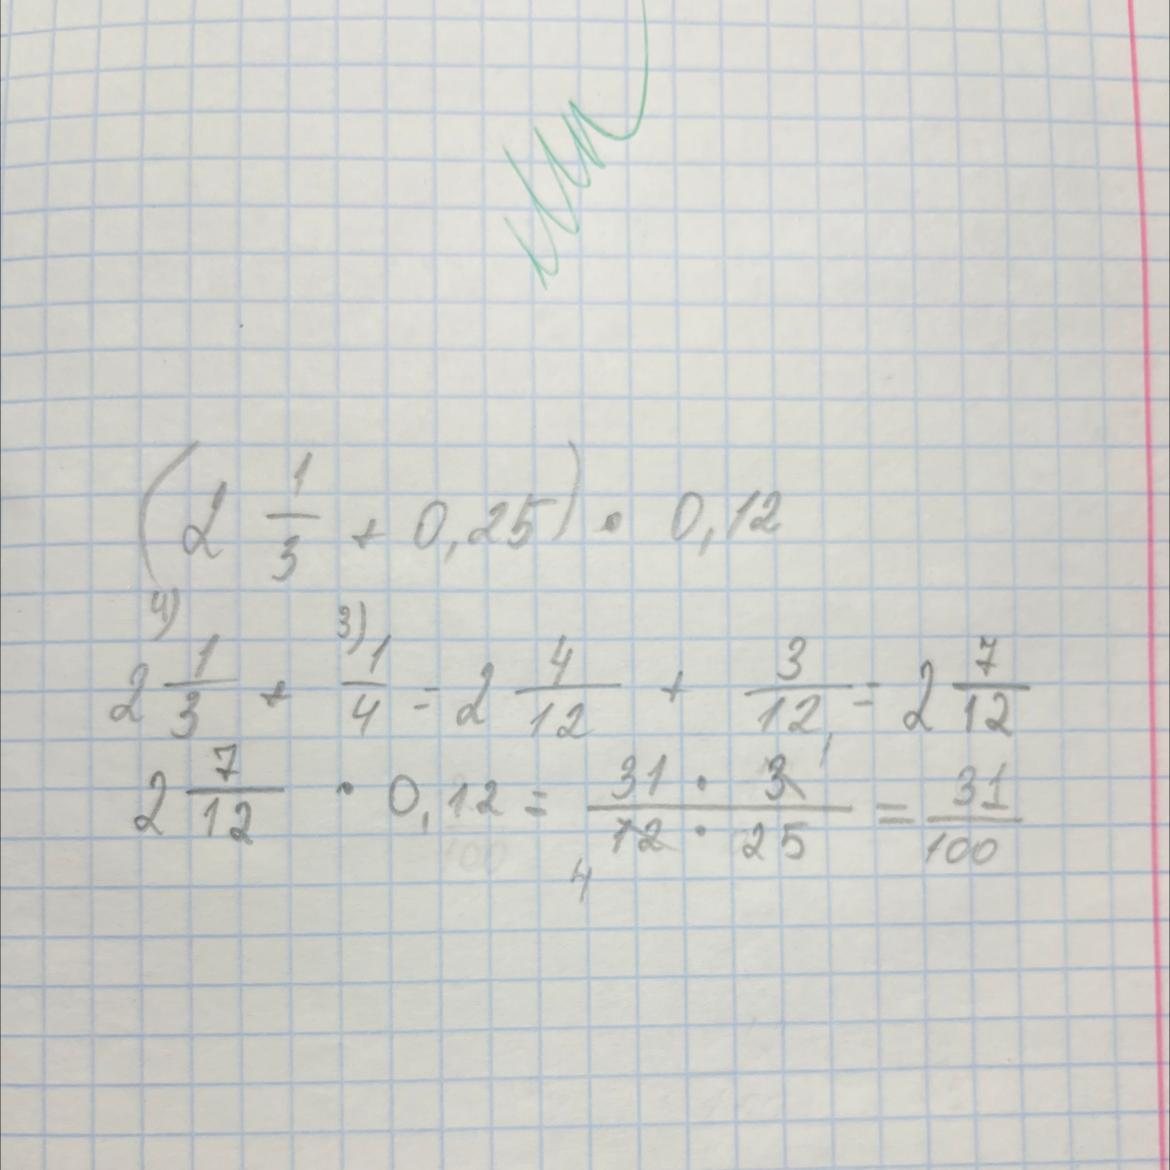 (2 1/3 + 0,25) · 0,12
2 4) 1/3 + 3) 1/4 = 2 4/12 + 3/12 = 2 7/12
2 7/12 · 0,12 = 31 · 3 1 / 12 4 · 25 = 31/100